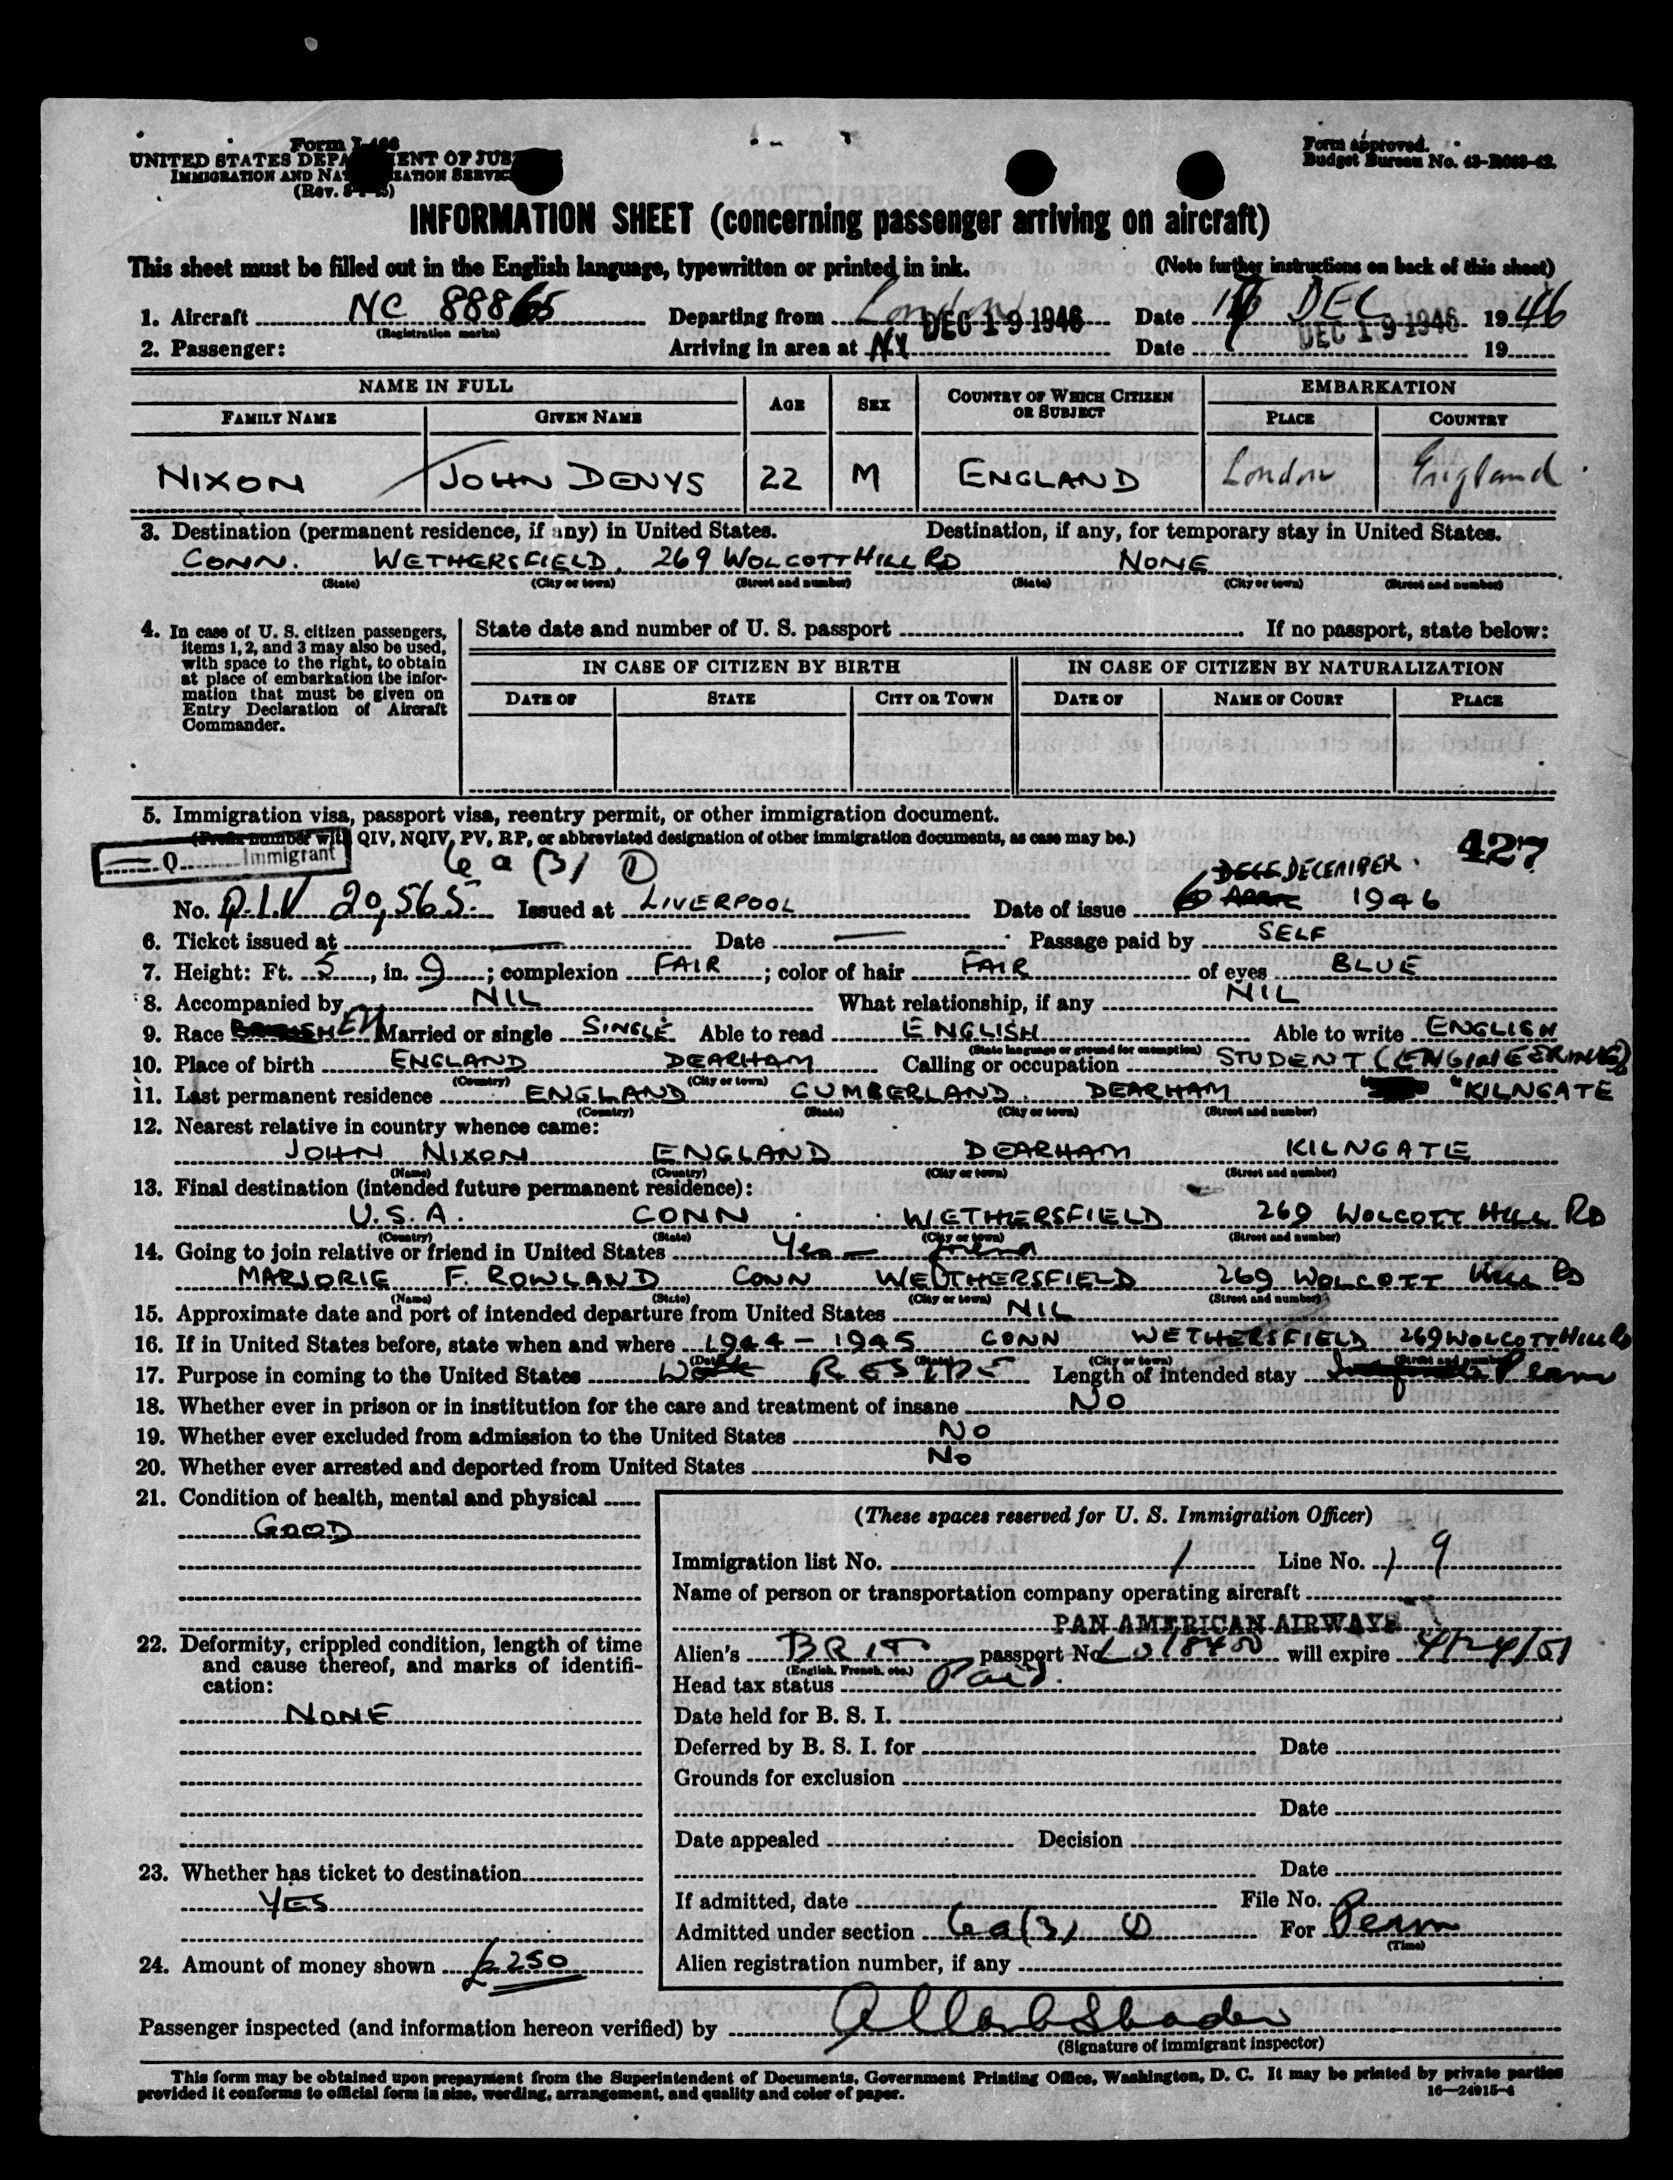 Form I-466
UNITED STATES DEPARTMENT OF JUSTICE
IMMIGRATION AND NATURALIZATION SERVICE
(Rev.
Form approved.
Budget Bureau No. 43-R063-42.
INFORMATION SHEET (concerning passenger arriving on aircraft)
This sheet must be filled out in the English language, typewritten or printed in ink. (Note further instructions on back of this sheet)
1. Aircraft NC 88865 Departing from London Date DEC 1946
(Registration marks) DEC 19 1946 DEC 19 1946
2. Passenger: Arriving in area at NY Date 19
NAME IN FULL AGE SEX COUNTRY OF WHICH CITIZEN OR SUBJECT EMBARKATION
FAMILY NAME GIVEN NAME PLACE COUNTRY
NIXON JOHN DENYS 22 M ENGLAND London England
3. Destination (permanent residence, if any) in United States. Destination, if any, for temporary stay in United States.
CONN. WETHERSFIELD, 269 WOLCOTT HILL RD NONE
(State) (City or town) (Street and number) (State) (City or town) (Street and number)
4. In case of U. S. citizen passengers, items 1, 2, and 3 may also be used, with space to the right, to obtain at place of embarkation the information that must be given on Entry Declaration of Aircraft Commander.
State date and number of U. S. passport If no passport, state below:
IN CASE OF CITIZEN BY BIRTH IN CASE OF CITIZEN BY NATURALIZATION
DATE OF STATE CITY OR TOWN DATE OF NAME OF COURT PLACE
5. Immigration visa, passport visa, reentry permit, or other immigration document.
(Prefix number with QIV, NQIV, PV, RP, or abbreviated designation of other immigration documents, as case may be.) 427
Q Immigrant 6 a (3) (1)
DECEMBER
No. Q.I.V 20,565 Issued at LIVERPOOL Date of issue 6 1946
6. Ticket issued at — Date — Passage paid by SELF
7. Height: Ft. 5, in. 9; complexion FAIR; color of hair FAIR of eyes BLUE
8. Accompanied by NIL What relationship, if any NIL
9. Race BRITISH EN Married or single SINGLE Able to read ENGLISH Able to write ENGLISH
(State language or ground for exemption)
10. Place of birth ENGLAND DEARHAM Calling or occupation STUDENT (ENGINEERING)
(Country) (City or town)
11. Last permanent residence ENGLAND CUMBERLAND. DEARHAM "KILNGATE
(Country) (State) (City or town) (Street and number)
12. Nearest relative in country whence came:
JOHN NIXON ENGLAND DEARHAM KILNGATE
(Name) (Country) (City or town) (Street and number)
13. Final destination (intended future permanent residence):
U.S.A. CONN WETHERSFIELD 269 WOLCOTT HILL RD
(Country) (State) (City or town) (Street and number)
14. Going to join relative or friend in United States Yes — friend
MARJORIE F. ROWLAND CONN WETHERSFIELD 269 WOLCOTT HILL RD
(Name) (State) (City or town) (Street and number)
15. Approximate date and port of intended departure from United States NIL
16. If in United States before, state when and where 1944 - 1945 CONN WETHERSFIELD 269 WOLCOTT HILL RD
(Date) (State) (City or town) (Street and number)
17. Purpose in coming to the United States RESIDE Length of intended stay Perm
18. Whether ever in prison or in institution for the care and treatment of insane NO
19. Whether ever excluded from admission to the United States NO
20. Whether ever arrested and deported from United States NO
21. Condition of health, mental and physical
GOOD
22. Deformity, crippled condition, length of time and cause thereof, and marks of identification:
NONE
23. Whether has ticket to destination
YES
24. Amount of money shown £250
(These spaces reserved for U. S. Immigration Officer)
Immigration list No. 1 Line No. 9
Name of person or transportation company operating aircraft
PAN AMERICAN AIRWAYS
Alien's BRIT passport No. will expire 4/24/51
(English, French, etc.)
Head tax status Paid.
Date held for B. S. I.
Deferred by B. S. I. for Date
Grounds for exclusion
Date
Date appealed Decision
Date
If admitted, date File No.
Admitted under section 6a(3) (1) For Perm
(Time)
Alien registration number, if any
Passenger inspected (and information hereon verified) by
(Signature of immigrant inspector)
This form may be obtained upon prepayment from the Superintendent of Documents, Government Printing Office, Washington, D. C. It may be printed by private parties
provided it conforms to official form in size, wording, arrangement, and quality and color of paper. 16—24915-4